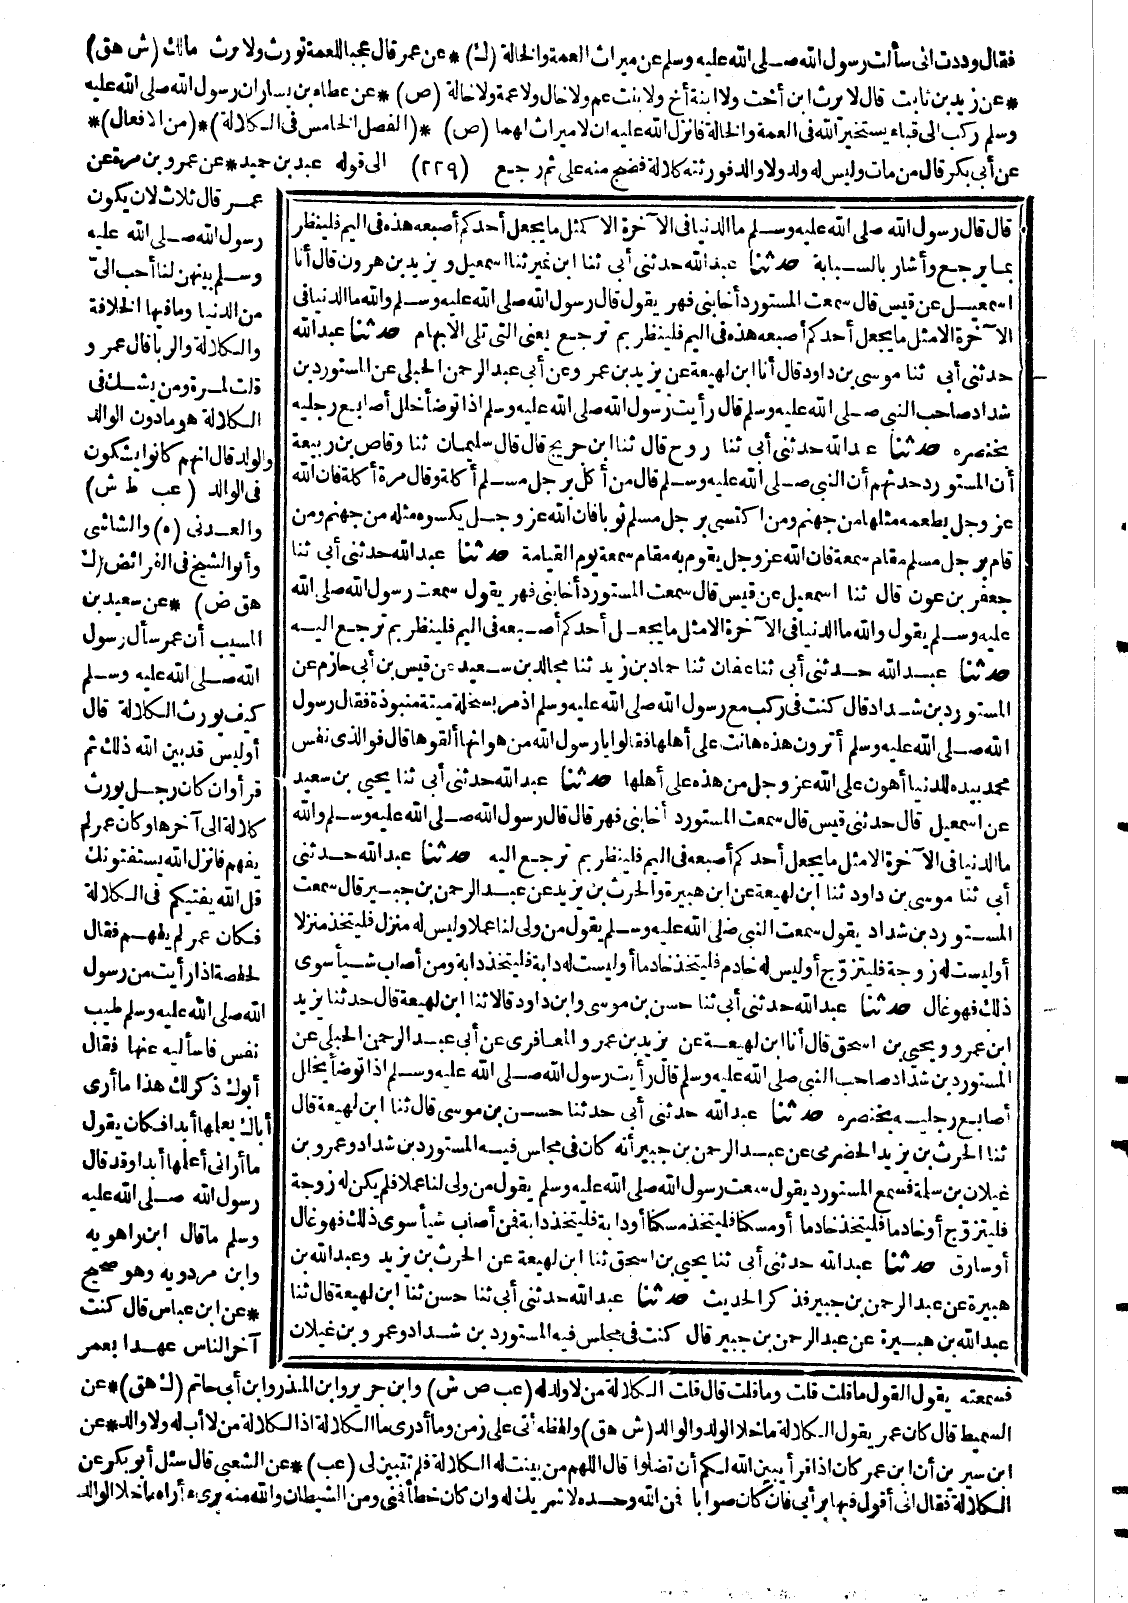 فقال وددت انى سألت رسول الله صلى الله عليه وسلم عن ميراث العمة والخالة (ك) * عن عمر قال عجبا للعمة تورث ولا ترث مالك (ش هق)
* عن زيد بن ثابت قال لا يرث ابن أخت ولا ابنة أخ ولا بنت عم ولا خال ولا عمة ولا خالة (ص) * عن عطاء بن يسار ان رسول الله صلى الله عليه
وسلم ركب الى قباء يستخير الله فى العمة والخالة فانزل الله عليه ان لا ميراث لهما (ص) * (الفصل الخامس فى الكلالة) * (من الافعال) *
عن أبى بكر قال من مات وليس له ولد ولا والد فورثته كلالة فضج منه على ثم رجع (٢٢٩) الى قوله عبد بن حميد * عن عمرو بن مرة عن
عمر قال ثلاث لان يكون
رسول الله صلى الله عليه
وسلم بينهن لنا أحب الىّ
من الدنيا وما فيها الخلافة
والكلالة والربا قال عمرو
قلت لمرة ومن يشك فى
الكلالة هو مادون الوالد
والولد قال انهم كانوا يشكون
فى الوالد (عب ط ش)
والعدنى (ه) والشاشى
وأبو الشيخ فى الفرائض (ك
هق ض) * عن سعيد بن
المسيب أن عمر سأل رسول
الله صلى الله عليه وسلم
كيف يورث الكلالة قال
أوليس قد بين الله ذلك ثم
قرأ وان كان رجل يورث
كلالة الى آخرها وكان عمر لم
يفهم فانزل الله يستفتونك
قل الله يفتيكم فى الكلالة
فكان عمر لم يفهم فقال
لحفصة اذا رأيت من رسول
الله صلى الله عليه وسلم طيب
نفس فاسأليه عنها فقال
أبوك ذكر لك هذا ما أرى
أباك يعلمها أبدا فكان يقول
ما أرانى أعلمها أبدا وقد قال
رسول الله صلى الله عليه
وسلم ما قال ابن راهويه
وابن مردويه وهو صحيح
* عن ابن عباس قال كنت
آخر الناس عهدا بعمر
قال قال رسول الله صلى الله عليه وسلم ما الدنيا فى الآخرة الا كمثل ما يجعل أحدكم أصبعه هذه فى اليم فلينظر
بما يرجع وأشار بالسبابة حدثنا عبد الله حدثنى أبى ثنا ابن نمير ثنا اسمعيل ويزيد بن هرون قال أنا
اسمعيل عن قيس قال سمعت المستورد أخا بنى فهر يقول قال رسول الله صلى الله عليه وسلم والله ما الدنيا فى
الآخرة الا مثل ما يجعل أحدكم أصبعه هذه فى اليم فلينظر بم ترجع يعنى التى تلى الابهام حدثنا عبد الله
حدثنى أبى ثنا موسى بن داود قال أنا ابن لهيعة عن يزيد بن عمرو عن أبى عبد الرحمن الحبلى عن المستورد بن
شداد صاحب النبى صلى الله عليه وسلم قال رأيت رسول الله صلى الله عليه وسلم اذا توضأ خلل أصابع رجليه
بخنصره حدثنا عبد الله حدثنى أبى ثنا روح قال ثنا ابن جريج قال قال سليمان ثنا وقاص بن ربيعة
أن المستورد حدثهم أن النبى صلى الله عليه وسلم قال من أكل برجل مسلم أكلة وقال مرة أكلة فان الله
عز وجل يطعمه مثلها من جهنم ومن اكتسى برجل مسلم ثوبا فان الله عز وجل يكسوه مثله من جهنم ومن
قام برجل مسلم مقام سمعة فان الله عز وجل يقوم به مقام سمعة يوم القيامة حدثنا عبد الله حدثنى أبى ثنا
جعفر بن عون قال ثنا اسمعيل عن قيس قال سمعت المستورد أخا بنى فهر يقول سمعت رسول الله صلى الله
عليه وسلم يقول والله ما الدنيا فى الآخرة الا مثل ما يجعل أحدكم أصبعه فى اليم فلينظر بم ترجع اليه
حدثنا عبد الله حدثنى أبى ثنا عفان ثنا حماد بن زيد ثنا مجالد بن سعيد عن قيس بن أبى حازم عن
المستورد بن شداد قال كنت فى ركب مع رسول الله صلى الله عليه وسلم اذ مر بسخلة ميتة منبوذة فقال رسول
الله صلى الله عليه وسلم أترون هذه هانت على أهلها فقالوا يا رسول الله من هوانها ألقوها قال فوالذى نفس
محمد بيده للدنيا أهون على الله عز وجل من هذه على أهلها حدثنا عبد الله حدثنى أبى ثنا يحيى بن سعيد
عن اسمعيل قال حدثنى قيس قال سمعت المستورد أخا بنى فهر قال قال رسول الله صلى الله عليه وسلم والله
ما الدنيا فى الآخرة الا مثل ما يجعل أحدكم أصبعه فى اليم فلينظر بم ترجع اليه حدثنا عبد الله حدثنى
أبى ثنا موسى بن داود ثنا ابن لهيعة عن ابن هبيرة والحرث بن يزيد عن عبد الرحمن بن جبير قال سمعت
المستورد بن شداد يقول سمعت النبى صلى الله عليه وسلم يقول من ولى لنا عملا وليس له منزل فليتخذ منزلا
أوليست له زوجة فليتزوج أوليس له خادم فليتخذ خادما أوليست له دابة فليتخذ دابة ومن أصاب شيأ سوى
ذلك فهو غال حدثنا عبد الله حدثنى أبى ثنا حسن بن موسى وابن داود قالا ثنا ابن لهيعة قال حدثنا يزيد
ابن عمرو ويحيى بن اسحق قال أنا ابن لهيعة عن يزيد بن عمرو المعافرى عن أبى عبد الرحمن الحبلى عن
المستورد بن شداد صاحب النبى صلى الله عليه وسلم قال رأيت رسول الله صلى الله عليه وسلم اذا توضأ يخلل
أصابع رجليه بخنصره حدثنا عبد الله حدثنى أبى حدثنا حسن بن موسى قال ثنا ابن لهيعة قال
ثنا الحرث بن يزيد الحضرمى عن عبد الرحمن بن جبير أنه كان فى مجلس فيه المستورد بن شداد وعمرو بن
غيلان بن سلمة فسمع المستورد يقول سمعت رسول الله صلى الله عليه وسلم يقول من ولى لنا عملا فلم يكن له زوجة
فليتزوج أو خادما فليتخذ خادما أو مسكنا فليتخذ مسكنا أو دابة فليتخذ دابة فمن أصاب شيأ سوى ذلك فهو غال
أو سارق حدثنا عبد الله حدثنى أبى ثنا يحيى بن اسحق ثنا ابن لهيعة عن الحرث بن يزيد وعبد الله بن
هبيرة عن عبد الرحمن بن جبير فذكر الحديث حدثنا عبد الله حدثنى أبى ثنا حسن ثنا ابن لهيعة قال ثنا
عبد الله بن هبيرة عن عبد الرحمن بن جبير قال كنت فى مجلس فيه المستورد بن شداد وعمرو بن غيلان
فسمعته يقول القول ما قلت قلت وما قلت قال قلت الكلالة من لا ولد له (عب ص ش) وابن جرير وابن المنذر وابن أبى حاتم (ك هق) * عن
السميط قال كان عمر يقول الكلالة ما خلا الولد والوالد (ش هق) ولفظه أتى على زمن وما أدرى ما الكلالة اذا الكلالة من لا أب له ولا ولد * عن
ابن سيرين أن ابن عمر كان اذا قرأ يبين الله لكم أن تضلوا قال اللهم من بينت له الكلالة فلم تتبين لى (عب) * عن الشعبى قال سئل أبو بكر عن
الكلالة فقال انى أقول فيها برأيى فان كان صوابا فمن الله وحده لا شريك له وان كان خطأ فمنى ومن الشيطان والله منه برىء أراه ما خلا الوالد